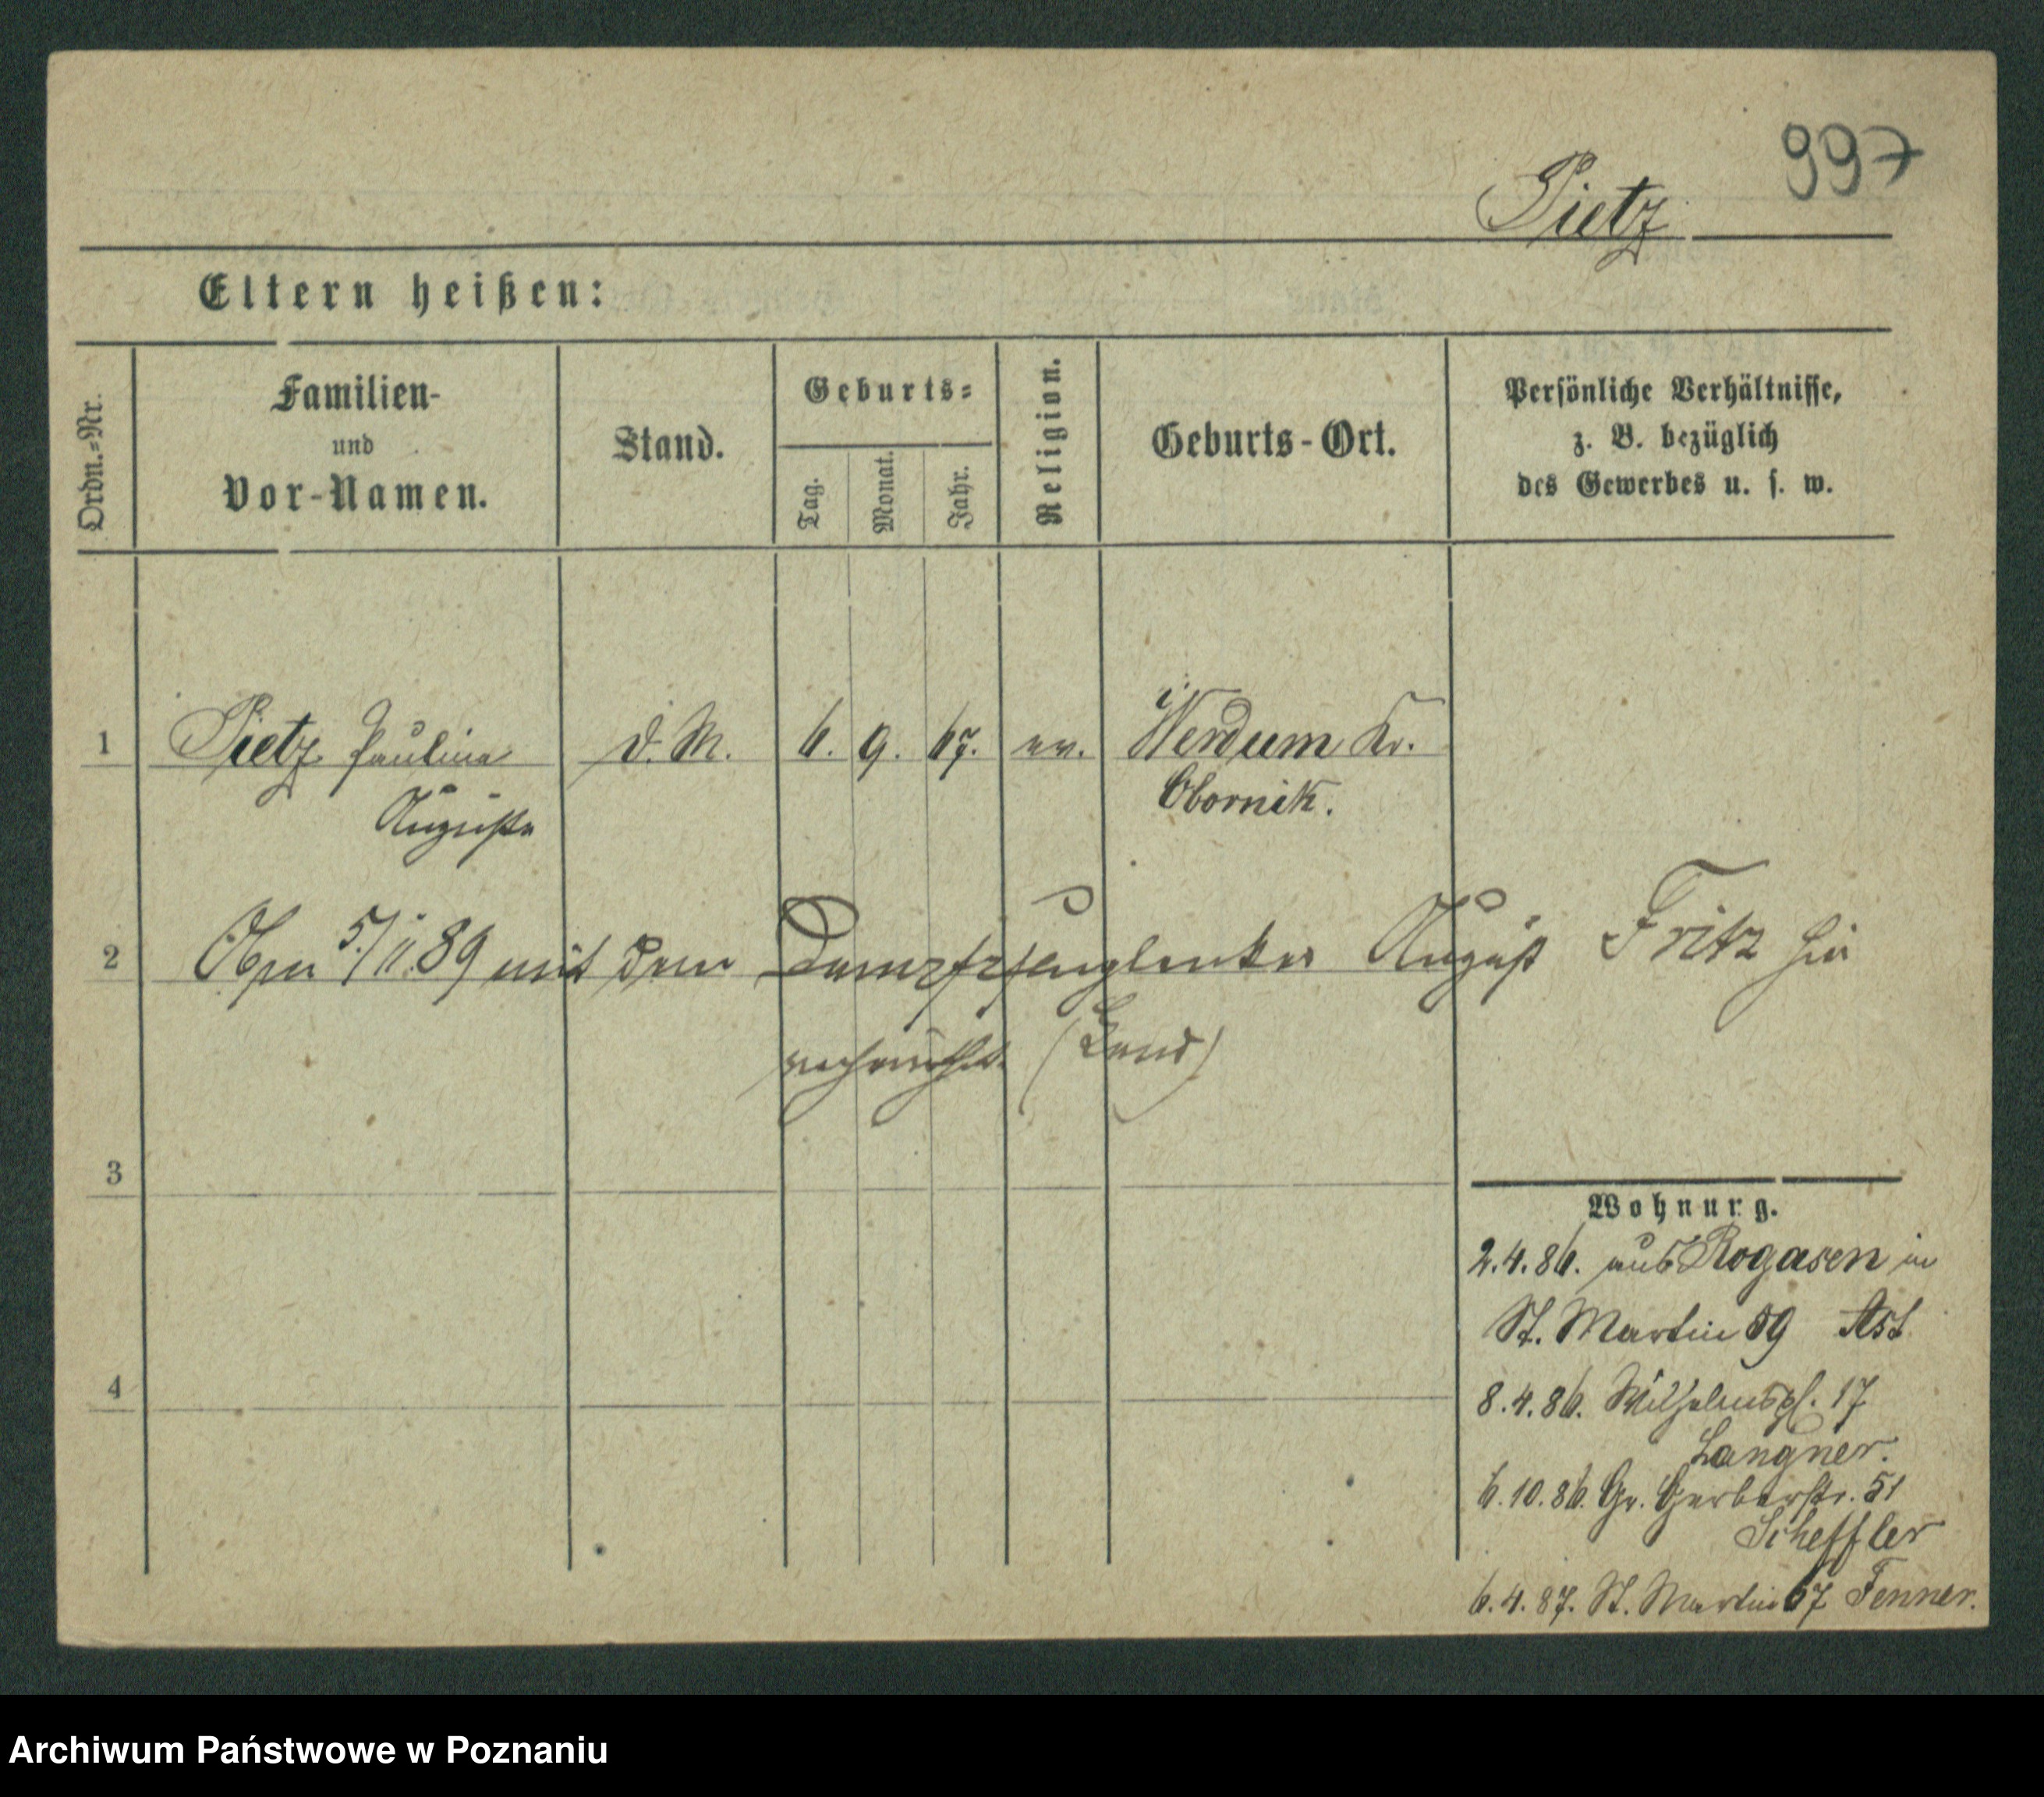 997
Pietz
Eltern heißen:
Ordn.-Nr.
Familien-
und
Vor-Namen.
Stand.
Geburts-
Tag.
Monat.
Jahr.
Religion.
Geburts-Ort.
Persönliche Verhältnisse,
z. B. bezüglich
des Gewerbes u. s. w.
1 Pietz Pauline d. M. 6. 9. 67. ev. Werdum Kr.
Auguste Obornik.
2 5./11.89 mit dem August Fritz hier
verheirathet. (Land)
3
Wohnung.
2.4.86. aus Rogasen in
St. Martin 59 Ast
4
8.4.86. Wilhelmspl. 17
Langner.
6.10.86. Gr. Gerberstr. 51
Scheffler
6.4.87. St. Martin 67 Fenner.
Archiwum Państwowe w Poznaniu